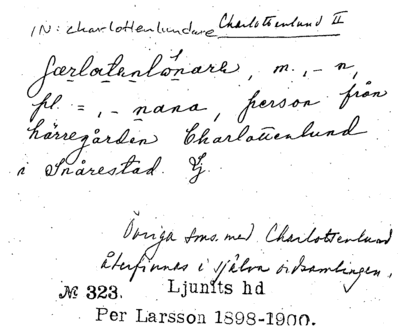 IN: charlottenlundare Charlottenlund II
særlotenlönare, m., -n,
pl. =, - nana, person från
härregården Charlottenlund
i Snårestad. Lj.
Övriga sms. med Charlottenlund
återfinnas i själva ordsamlingen.
№ 323. Ljunits hd
Per Larsson 1898-1900.